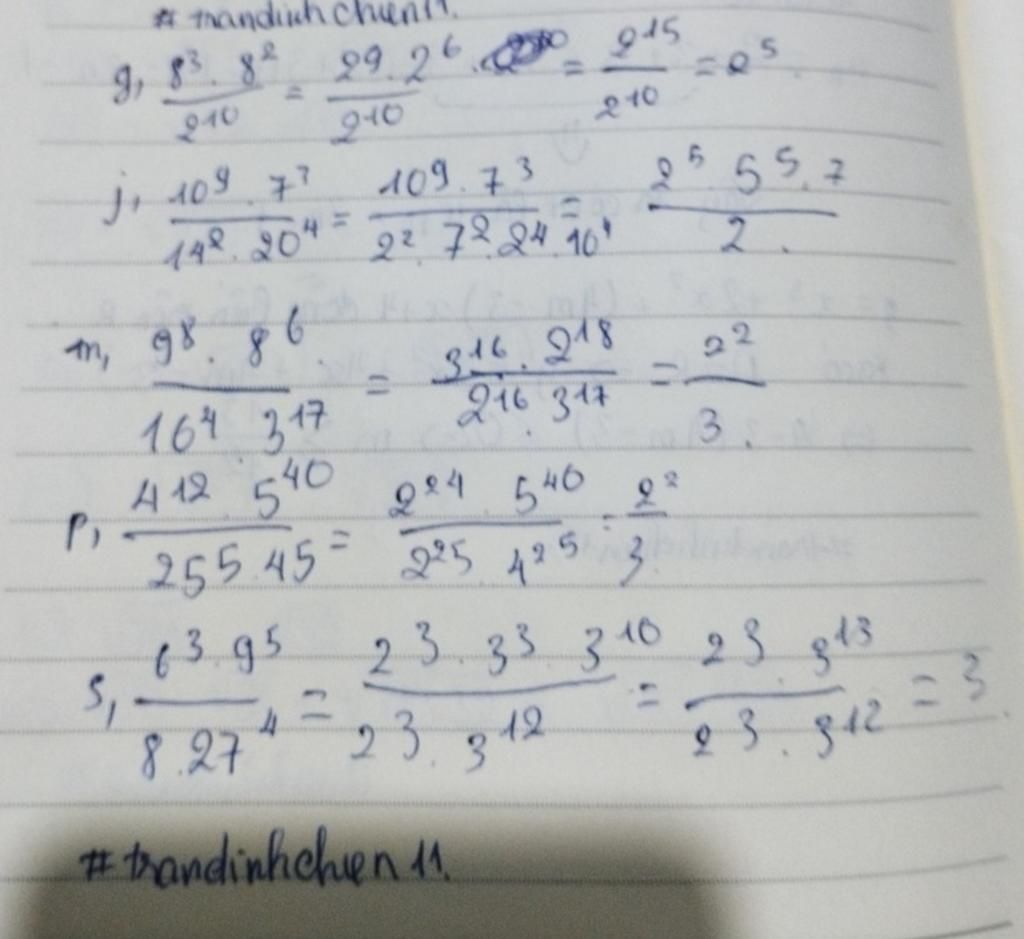 # trandinhchien11.
g, 8³ . 8² / 2¹⁰ = 2⁹ . 2⁶ / 2¹⁰ = 2¹⁵ / 2¹⁰ = 2⁵
j, 10⁹ . 7³ / 14² . 20⁴ = 10⁹ . 7³ / 2² . 7² . 2⁴ . 10⁴ = 2⁵ 5⁵ . 7 / 2 .
m, 9⁸ . 8⁶ / 16⁴ . 3¹⁷ = 3¹⁶ . 2¹⁸ / 2¹⁶ . 3¹⁷ = 2² / 3 .
p, 4¹² 5⁴⁰ / 25⁵ 45 = 2²⁴ 5⁴⁰ / 2²⁵ 4²⁵ = 2² / 3
s, 6³ . 9⁵ / 8 . 27⁴ = 2³ . 3³ 3¹⁰ / 2³ . 3¹² = 2³ . 3¹³ / 2³ . 3¹² = 3
# trandinhchien 11.